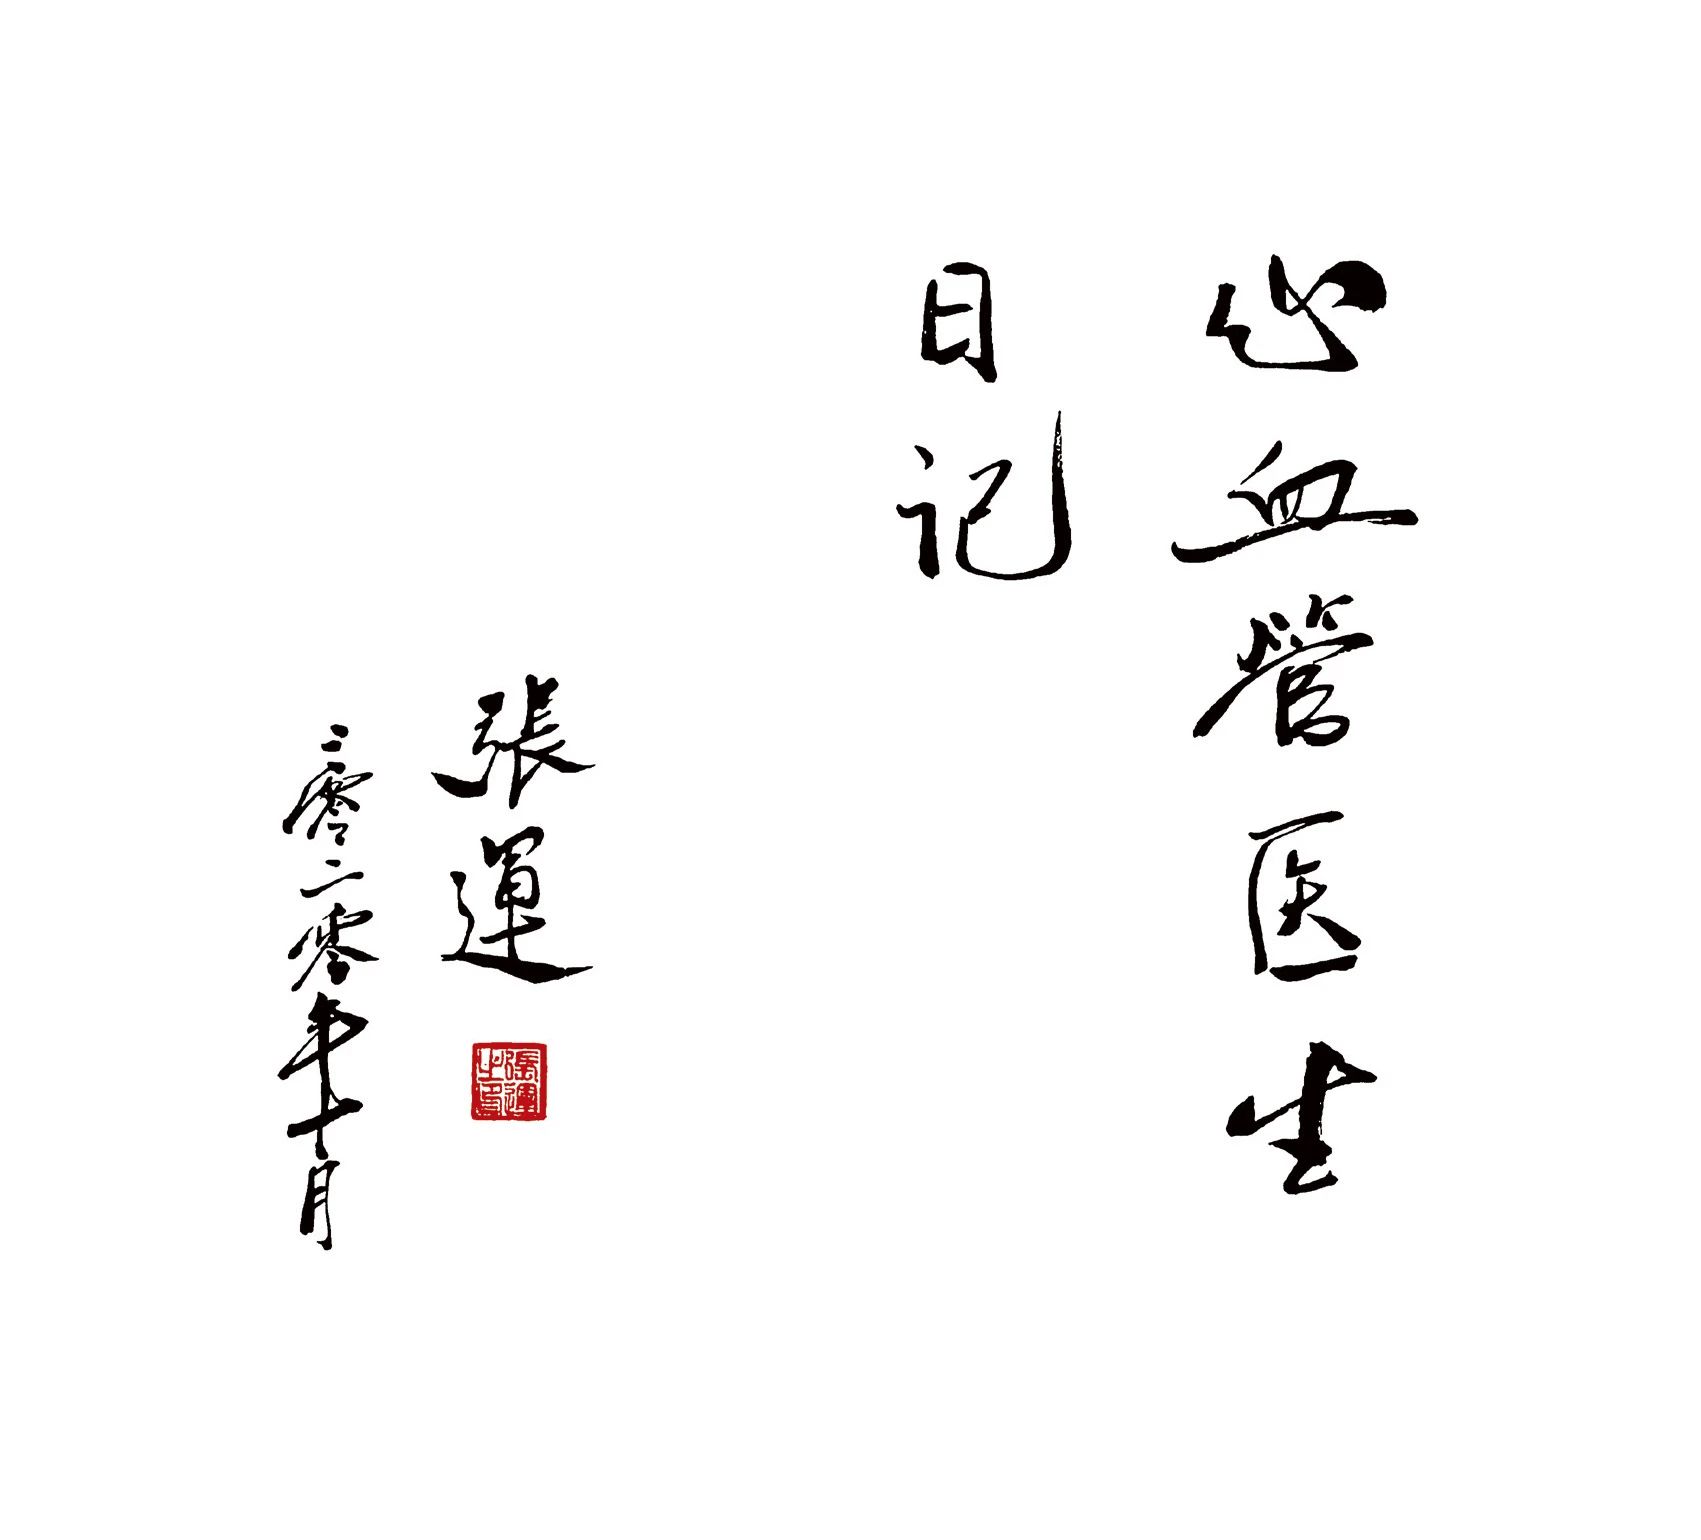 心血管医生
日记
張運
二零二零年十月
張運之印